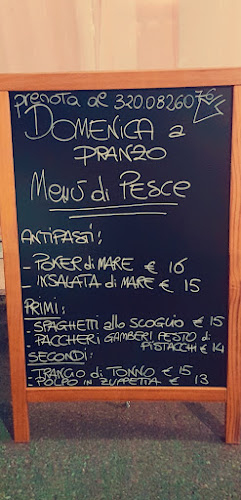 prenota al 320.0826076
DOMENICA a
PRANZO
MENÙ di PESCE
ANTIPASTI:
- POKER di MARE € 16
- INSALATA di MARE € 15
PRIMI:
- SPAGHETTI allo SCOGLIO € 15
- PACCHERI GAMBERI PESTO di
PISTACCHI € 14
SECONDI:
- TRANCIO di TONNO € 15
- POLPO IN ZUPPETTA € 13